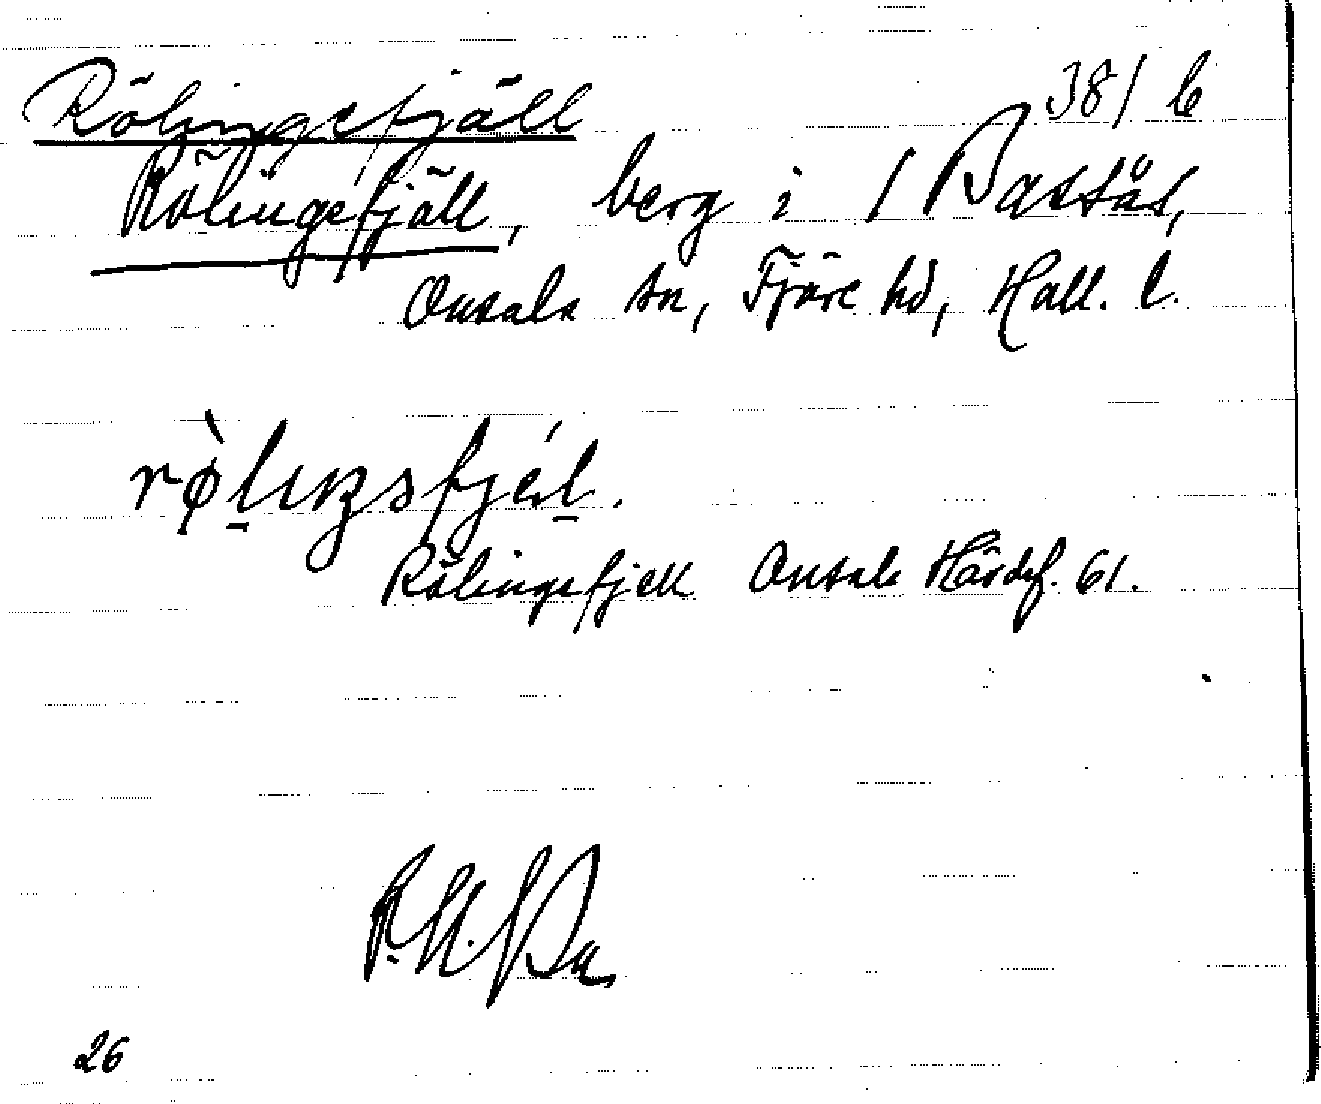 Rölingefjäll 38/6
Rölingefjäll, berg i 1 Bassås,
Onsala sn, Fjäre hd, Hall. l.
rø̀lıŋsfjél.
Rölingefjell Onsala Härdsf. 61.
26